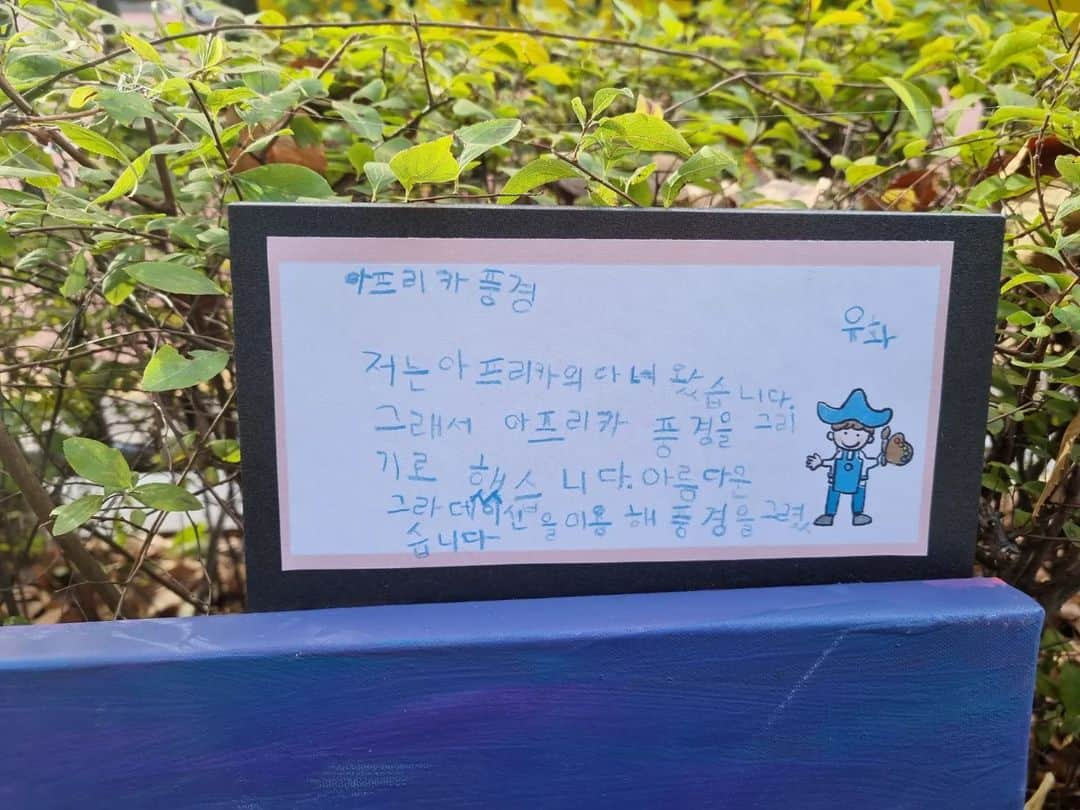 아프리카 풍경
유화
저는 아프리카의 다녀 왔습니다.
그래서 아프리카 풍경을 그리
기로 했스 니다. 아름다운
그라데이션을 이용 해 풍경을 그렸
습니다